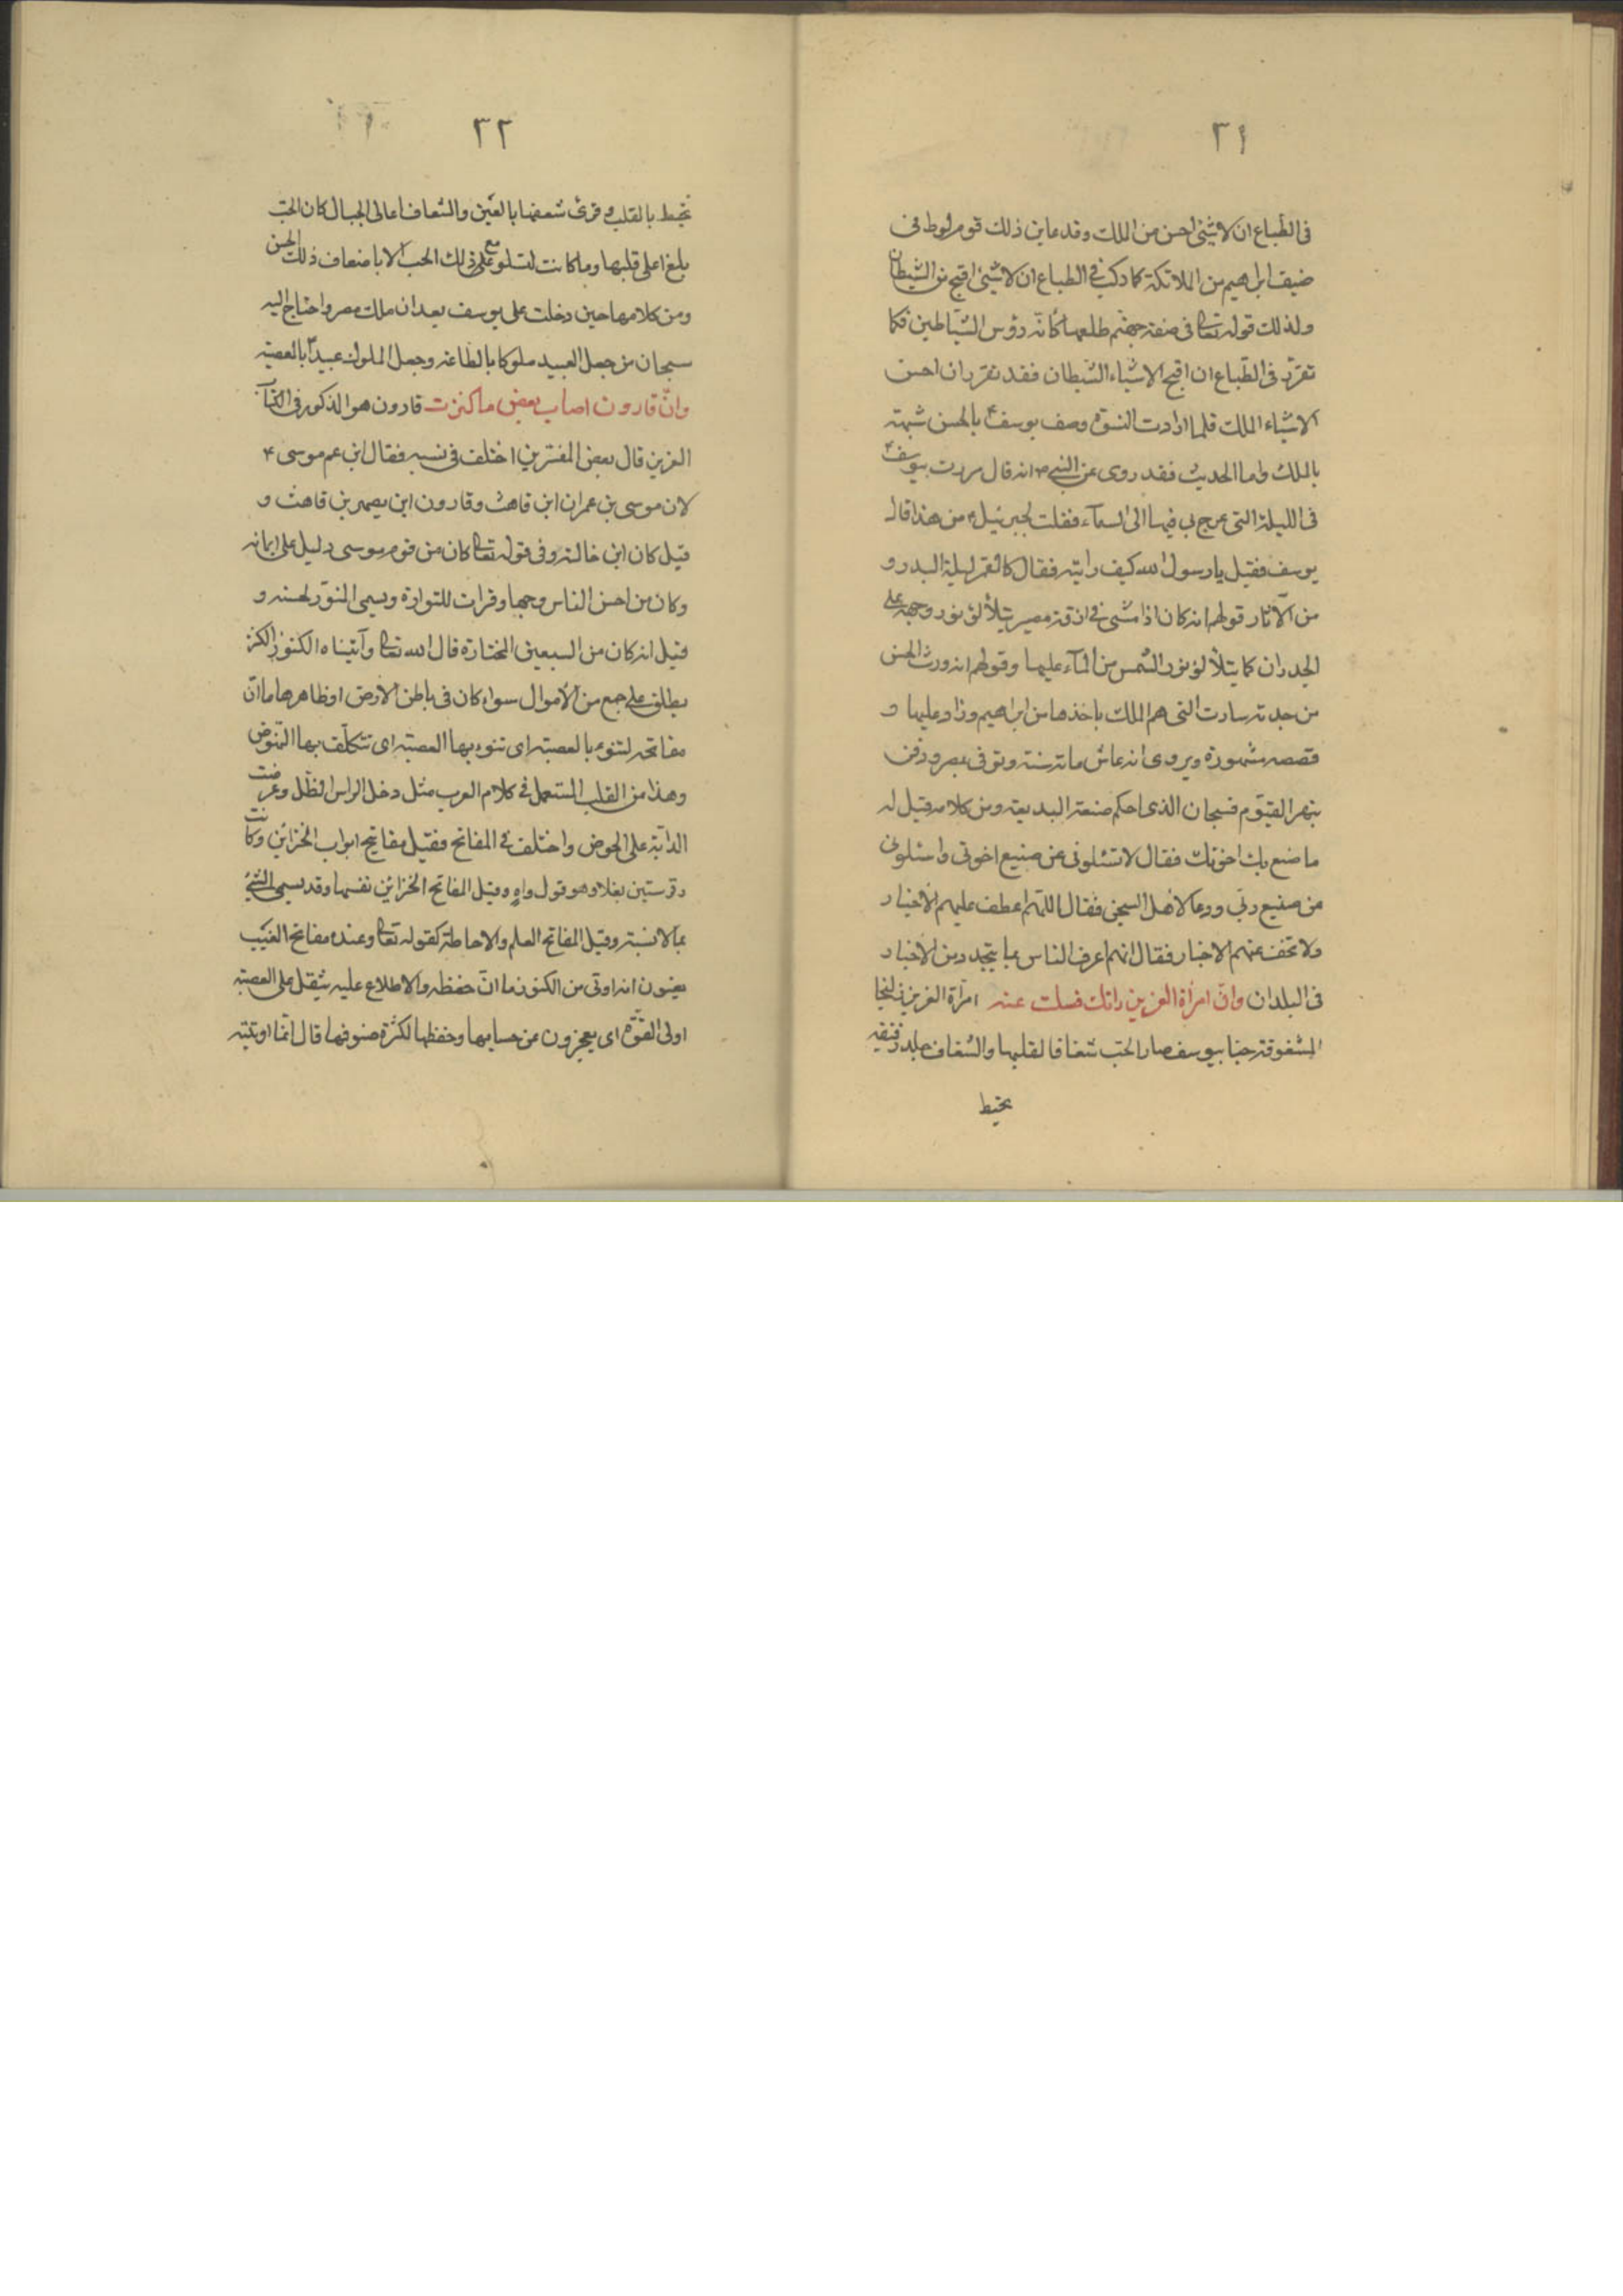 ٣١
فى الطباع ان لا شيئ احسن من الملك وقد عاين ذلك قوم لوط فى
ضيف ابراهيم من الملائكة كما ركب فى الطباع ان لا شيئ اقبح من الشيطان
ولذلك قوله تعالى فى صفة جهنم طلعها كأنّه رؤس الشياطين فكما
تقرّر فى الطباع ان اقبح الاشياء الشيطان فقد تقرر ان احسن
الاشياء الملك فلما ارادت النسوة وصف يوسف ع بالحسن شبهته
بالملك واما الحديث فقد روى عن النبى ص انه قال مررت بيوسف ع
فى الليلة التى عرج بى فيها الى السمآء فقلت لجبرئيل ع من هذا قال
يوسف فقيل يا رسول الله كيف رايته فقال كالقمر ليلة البدر و
من الآثار قولهم انه كان اذا مشى فى ازقة مصر يتلألؤ نور وجهه على
الجدران كما يتلألؤ نور الشمس من المآء عليها وقولهم انه ورث الحسن
من جدته سارة التى هم الملك باخذها من ابراهيم وزاد عليها و
قصصه مشهورة ويروى انه عاش مائة سنة وتوفى بمصر ودفن
بنهر الفيّوم فسبحان الذى احكم صنعته البديعة ومن كلامه قيل له
ما صنع بك اخوتك فقال لا تسئلونى عن صنيع اخوتى واسئلونى
من صنيع ربّى ودعا لاهل السجن فقال اللهم اعطف عليهم الاخيار
ولا تخف عنهم الاخبار فقال انهم اعرف الناس بما يتجدد من الاخبار
فى البلدان وانّ امرأة العزيز رأتك فسلت عنه امرأة العزيز زليخا
المشغوفة حبّا بيوسف صار الحبّ شغافا لقلبها والشغاف جلدة رقيقة
تحيط
٣٢
تحيط بالقلب وقرئ شعفها بالعين والشعاف اعالى الجبال كان الحبّ
بلغ اعلى قلبها وما كانت لتسلو مع على ذلك الحب الا باضعاف ذلك الحسن
ومن كلامها حين دخلت على يوسف بعد ان ملك مصر واحتاج اليه
سبحان من جعل العبيد ملوكا بالطاعة وجعل الملوك عبيداً بالمعصية
وانّ قارون اصاب بعض ما كنزت قارون هو المذكور فى الكتاب
العزيز قال بعض المفسّرين اختلف فى نسبه فقال ابن عم موسى ع
لان موسى بن عمران ابن قاهث وقارون ابن يصهر بن قاهث و
قيل كان ابن خالته وفى قوله تعالى كان من قوم موسى دليل على ايمانه
وكان من احسن الناس وجها وقرات للتوارة ويسمى المنوّر لحسنه و
قيل انه كان من السبعين المختارة قال الله تعالى وآتيناه الكنوز الكنز
يطلق على جمع من الأموال سواء كان فى باطن الأرض او ظاهرها ما انّ
مفاتحه لتنوء بالعصبة اى تنوء بها العصبة اى تتكلّف بها النهوض
وهذا من القلب المستعمل فى كلام العرب مثل دخل الراس الظل وعرضت
الدابّة على الحوض واختلف فى المفاتح فقيل مفاتيح ابواب الخزائن وكانت
وقرستين بغلا وهو قول واهٍ وقيل المفاتح الخزائن نفسها وقد يسمى الشئ
بملابسته وقيل المفاتح العلم والاحاطة كقوله تعالى وعنده مفاتح الغيب
يعنون انه اوتى من الكنوز ما انّ حفظه والاطلاع عليه يثقل على العصبة
اولى القوّة اى يعجزون عن حسابها وحفظها لكثرة صنوفها قال انّما اوتيته